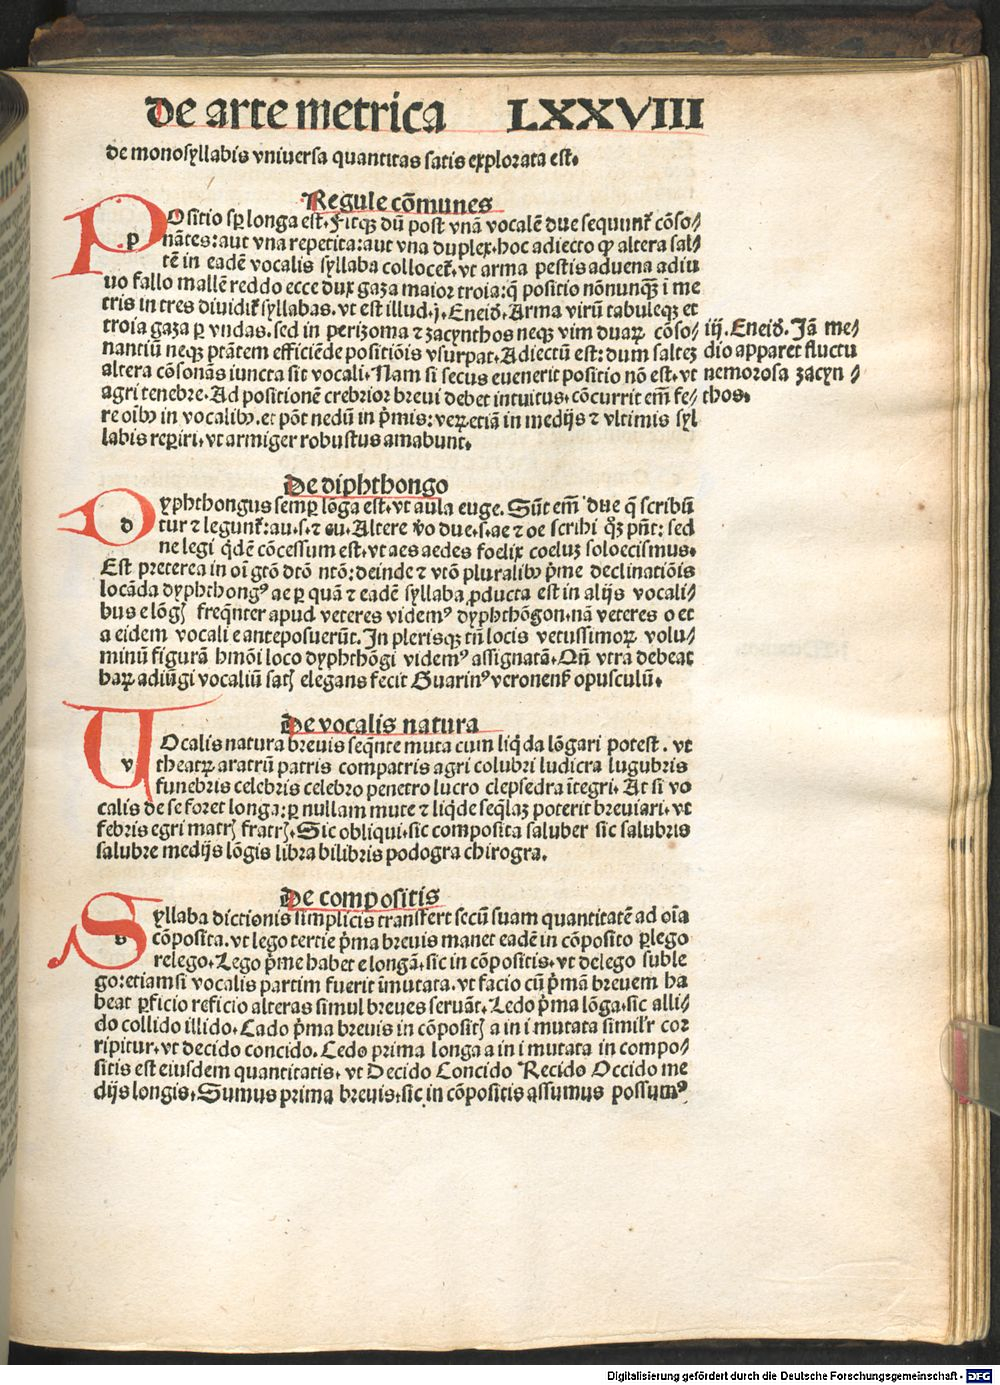 De arte metrica LXXVIII
de monosyllabis vniuersa quantitas satis explorata est.
Regule cõmunes
POsitio sp longa est. Fitqꝫ dũ post vnã vocalẽ due sequunt᷑ cõso⸗
nãtes: aut vna repetita: aut vna duplex. hoc adiecto ꝙ altera sal⸗
tẽ in eadẽ vocalis syllaba collocet᷑. vt arma pestis aduena adiu
uo fallo mallẽ reddo ecce dux gaza maior troia: q̃ positio nõnunqꝫ ĩ me
tris in tres diuidit᷑ syllabas. vt est illud. j. Eneid̛. Arma virũ tabuleqꝫ et
troia gaza ꝑ vndas. sed in perizoma ⁊ zacynthos neqꝫ vim duaꝝ cõso⸗
nantiũ neqꝫ ptãtem efficiẽde positiõis vsurpat. Adiectũ est: dum saltez
altera cõsonãs iuncta sit vocali. Nam si secus euenerit positio nõ est. vt
agri tenebre. Ad positionẽ crebrior breui debet intuitus. cõcurrit em̃ fe⸗
re oib9 in vocalib9. et põt nedũ in p̃mis: veꝝetiã in medijs ⁊ vltimis syl
labis reperiri. vt armiger robustus amabunt.
iij. Eneid̛. Jã me⸗
dio apparet fluctu
nemorosa zacyn⸗
thos.
De diphthongo
DYphthongus semꝑ lõga est. vt aula euge. Sũt em̃ due q̃ scribũ
tur ⁊ legunt᷑: au. s. ⁊ eu. Altere v̊o due. s. ae ⁊ oe scribi qͥdẽ pñt: sed
ne legi qͥdẽ cõcessum est. vt aes aedes foelix coeluz soloecismus.
Est preterea in oĩ gtõ dtõ ntõ: deinde ⁊ vtõ pluralib9 p̃me declinatiõis
locãda dyphthong⁹ ae ꝑ quã ⁊ eadẽ syllaba ꝓducta est in alijs vocali⸗
bus e lõgꝭ freq̃nter apud veteres videm⁹ dyphthõgon. nã veteres o et
a eidem vocali e anteposuerũt. In plerisqꝫ tñ locis vetustissimoꝝ volu⸗
minũ figurã hmõi loco dyphthõgi videm⁹ assignatã. Qñ vtra debeat
haꝝ adiũgi vocaliũ satꝭ elegans fecit Guarin⁹ veronens̃ opusculũ.
De vocalis natura
VOcalis natura breuis seq̃nte muta cum liqͥda lõgari potest. vt
theatꝝ aratrũ patris compatris agri colubri ludicra lugubris
funebris celebris celebro penetro lucro clepsedra ĩtegri. At si vo
calis de se foret longa: ꝑ nullam mute ⁊ liqͥde seq̃laz poterit breuiari. vt
febris egri matrꝭ fratrꝭ. Sic obliqui. sic composita saluber sic salubris
salubre medijs lõgis libra bilibris podogra chirogra.
De compositis
SYllaba dictionis simplicis transfert secũ suam quantitatẽ ad oĩa
cõposita. vt lego tertie p̃ma breuis manet eadẽ in cõposito ꝑlego
relego. Lego p̃me habet e longã. sic in cõpositis. vt delego suble
go: etiamsi vocalis partim fuerit ĩmutata. vt facio cũ p̃mã breuem ha
beat ꝑficio reficio alteras simul breues seruãt. Ledo p̃ma lõga. sic alli⸗
do collido illido. Cado p̃ma breuis in cõpositꝭ a in i mutata simil̃r cor
ripitur. vt decido concido. Cedo prima longa a in i mutata in compo⸗
sitis est eiusdem quantitatis. vt Decido Concido Recido Occido me
dijs longis. Sumus prima breuis. sic in cõpositis assumus possum⁹
Digitalisierung gefördert durch die Deutsche Forschungsgemeinschaft - DFG